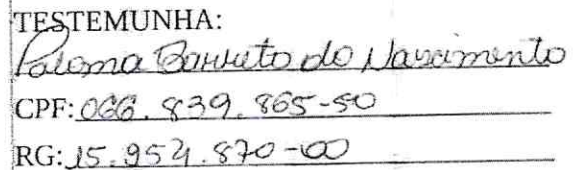 TESTEMUNHA:
Paloma Barreto do Nascimento
CPF: 066.839.865-50
RG: 15.954.870-00